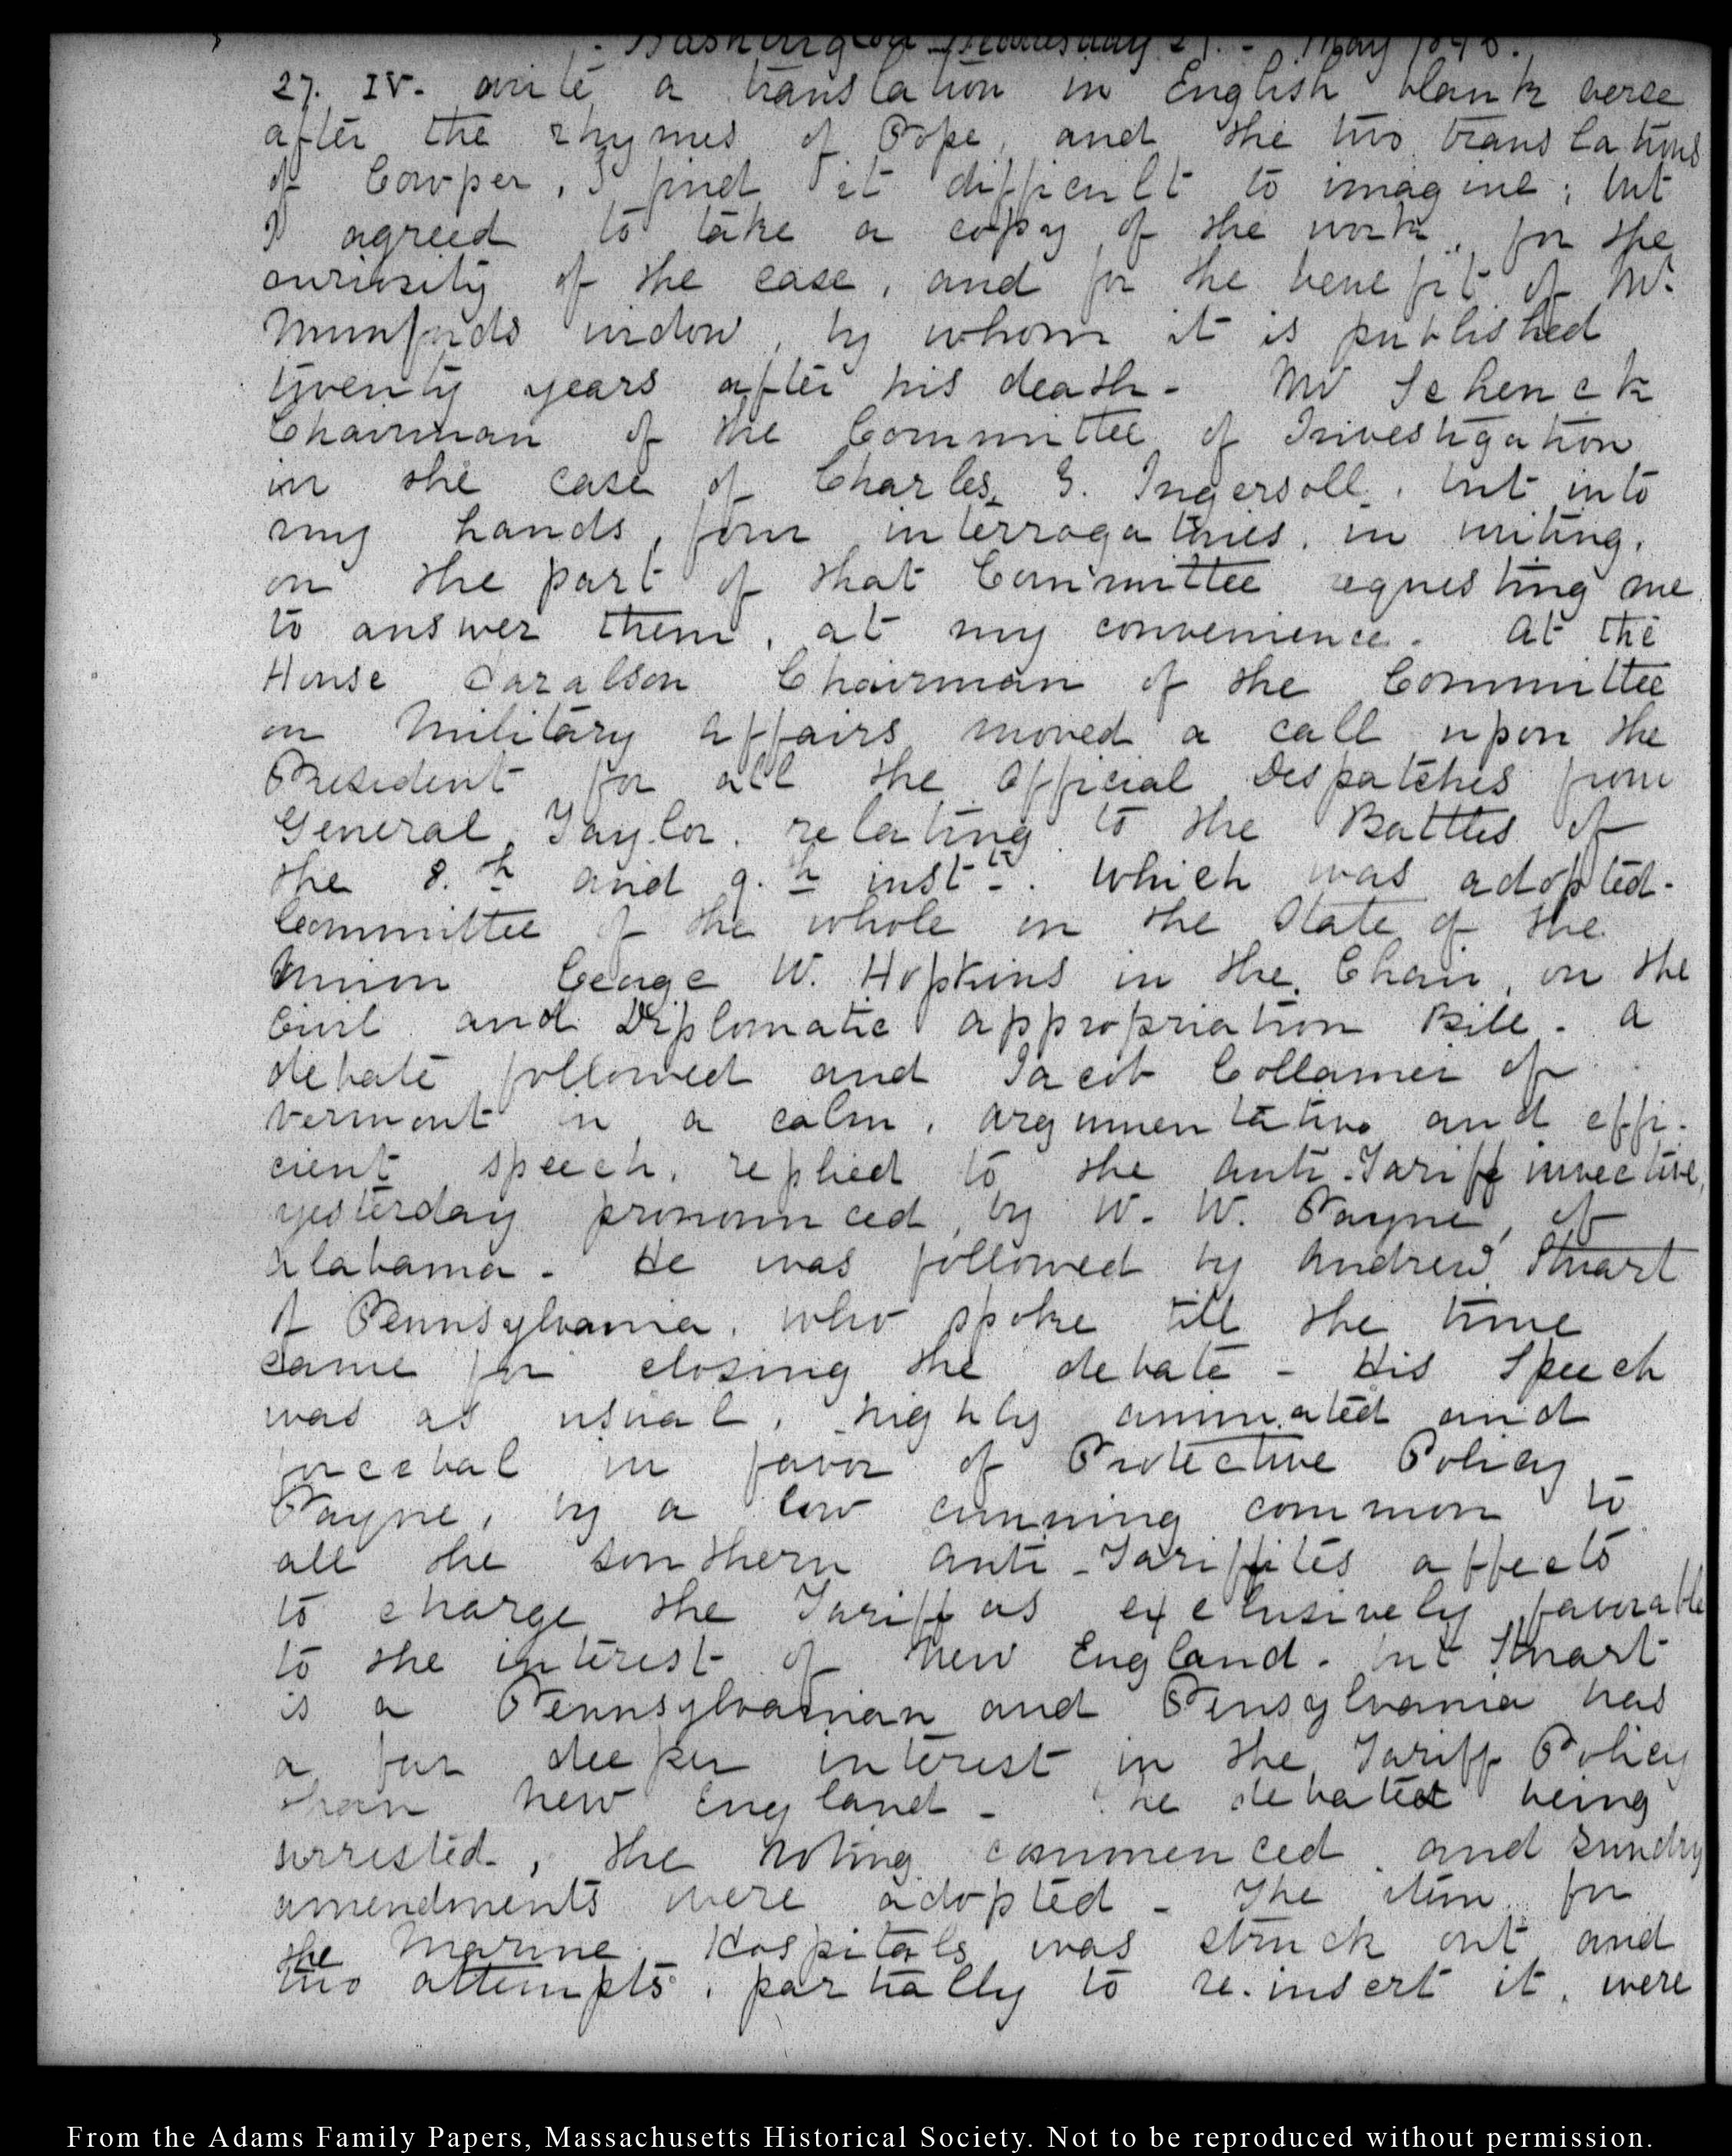 Washington Wednesday 27. - May 1846.
27. IV. write a translation in English blank verse
after the rhymes of Pope, and the two translations
of Cowper, I find it difficult to imagine; but
I agreed to take a copy of the work, for the
curiosity of the case, and for the benefit of Mr
Munfords widow, by whom it is published
twenty years after his death - Mr Schenck
Chairman of the Committee of Investigation
in the case of Charles J. Ingersoll, put into
my hands, four interrogatories, in writing,
on the part of that Committee requesting me
to answer them, at my convenience. At the
House Haralson Chairman of the Committee
on Military Affairs moved a call upon the
President for all the Official Despatches from
General Taylor, relating to the Battles of
the 8.th and 9.th instt. which was adopted.
Committee of the whole on the State of the
Union George W. Hopkins in the Chair, on the
Civil and Diplomatic appropriation Bill. A
debate followed and Jacob Collamer of
Vermont in a calm, argumentative and effi-
cient speech, replied to the anti-Tariff invective,
yesterday pronounced, by W. W. Payne, of
Alabama - He was followed by Andrew Stuart
of Pennsylvania, who spoke till the time
came for closing the debate - His Speech
was as usual, highly animated and
forcebal in favor of Protective Policy -
Payne, by a low cunning common to
all the southern anti-Tariffites affects
to charge the Tariff as exclusively favorable
to the interest of New England. but Stuart
is a Pennsylvanian and Pensylvania has
a far deeper interest in the Tariff Policy
than New England - The debated being
arrested, the voting commenced, and sundry
amendments were adopted - The item for
the Marine Hospitals was struck out and
two attempts, partially to re-insert it, were
From the Adams Family Papers, Massachusetts Historical Society. Not to be reproduced without permission.